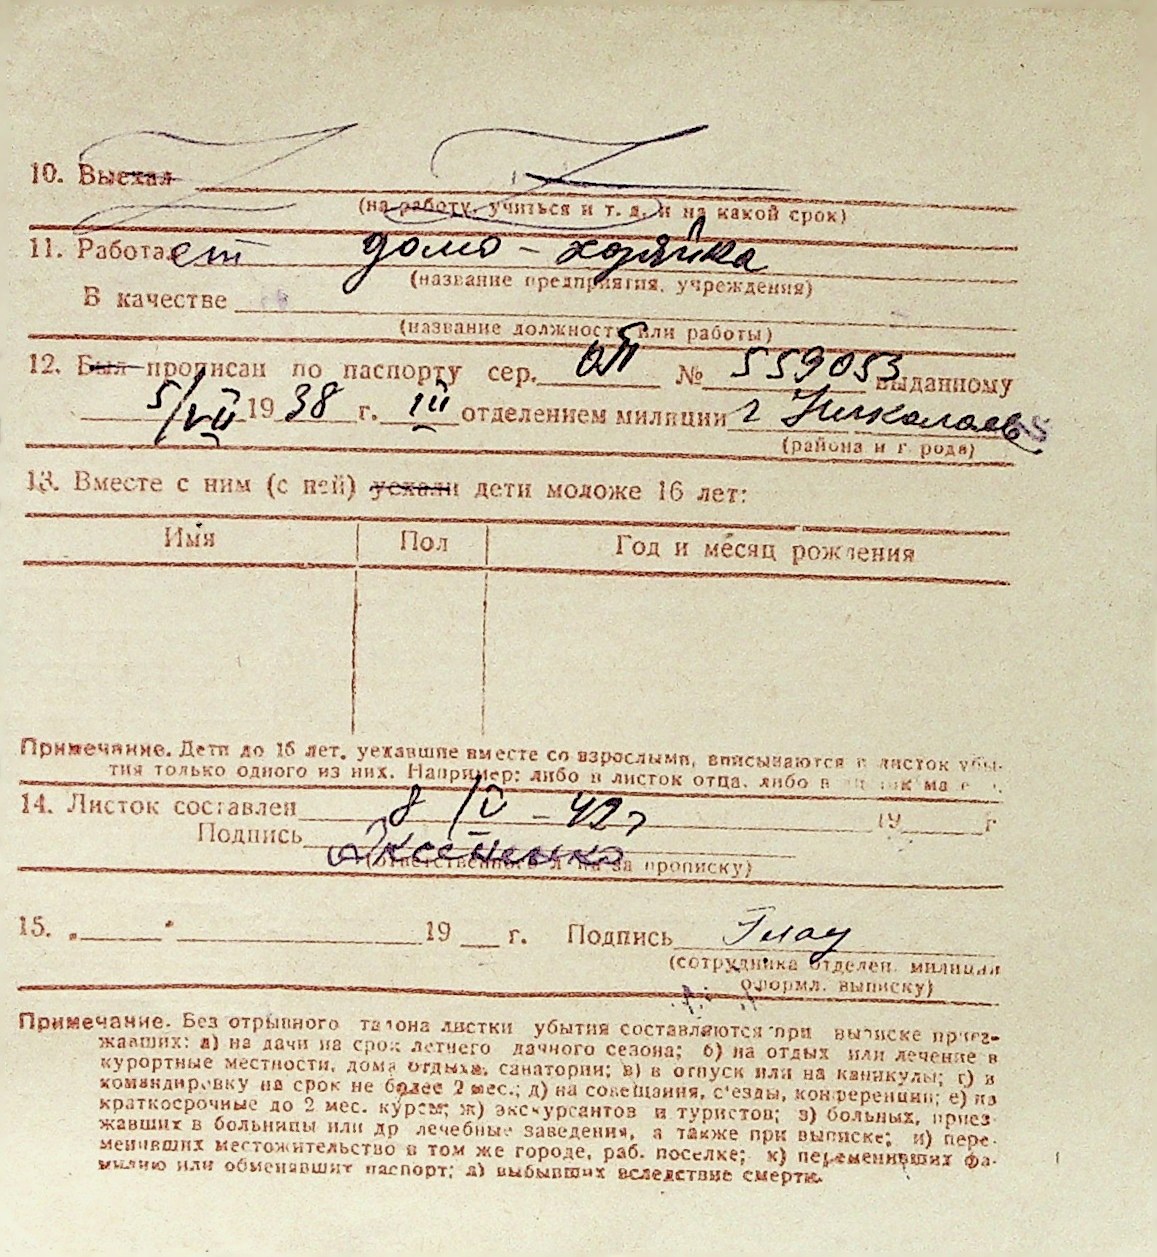 10. Выехал
(на работу, учиться и т. д. и на какой срок)
11. Работает домо-хозяйка
(название предприятия, учреждения)
В качестве
(название должности или работы)
12. Был прописан по паспорту сер. ОП № 559053 выданному
5/VII 1938 г. III отделением милиции г Николаев
(района и города)
13. Вместе с ним (с ней) уехали дети моложе 16 лет:
Имя Пол Год и месяц рождения
Примечание. Дети до 16 лет, уехавшие вместе со взрослыми, вписываются в листок убы-
тия только одного из них. Например: либо в листок отца, либо в
14. Листок составлен 8/IV-42г 19 г
Подпись Аксененко
(ответственного за прописку)
15. „ " 19 г. Подпись
(сотрудника отделен. милиции
оформл. выписку)
Примечание. Без отрывного талона листки убытия составляются при выписке приез-
жавших: а) на дачи на срок летнего дачного сезона; б) на отдых или лечение в
курортные местности, дома отдыха, санатории; в) в отпуск или на каникулы; г) в
командировку на срок не более 2 мес.; д) на совещания, с'езды, конференции; е) на
краткосрочные до 2 мес. курсы; ж) экскурсантов и туристов; з) больных, приез-
жавших в больницы или др лечебные заведения, а также при выписке; и) пере-
менивших местожительство в том же городе, раб. поселке; к) переменивших фа-
милию или обменявших паспорт; л) выбывших вследствие смерти.